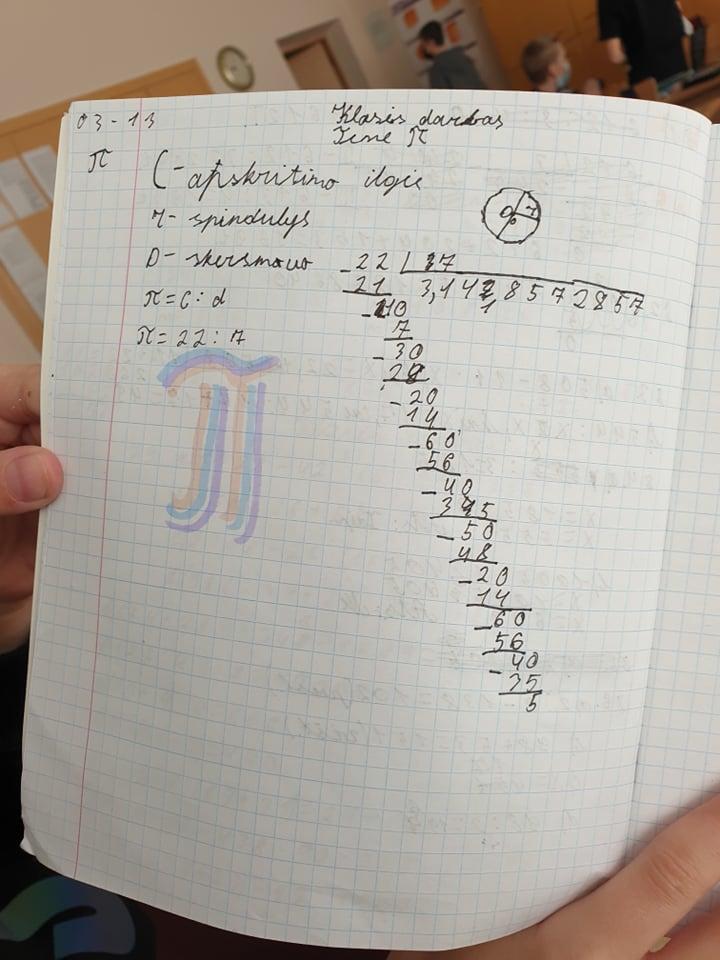 03-13
Klasės darbas
Tema π
π C-apskritimo ilgis
r- spindulys
D- skersmuo
π=C:d
π=22:7
-22 | 7
21 3,142857 2857
-10
7
-30
28
-20
14
-60
56
-40
35
-50
48
-20
14
-60
56
-40
35
5
π